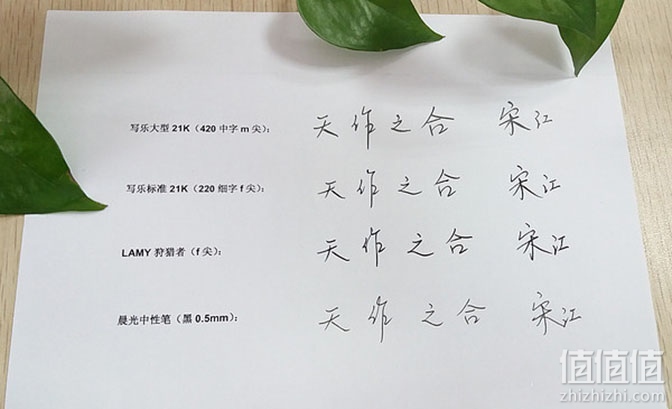 写乐大型 21K（420 中字 m 尖）： 天作之合 宋江
写乐标准 21K（220 细字 f 尖）： 天作之合 宋江
LAMY 狩猎者（f 尖）： 天作之合 宋江
晨光中性笔（黑 0.5mm）： 天作之合 宋江
值值值
zhizhizhi.com